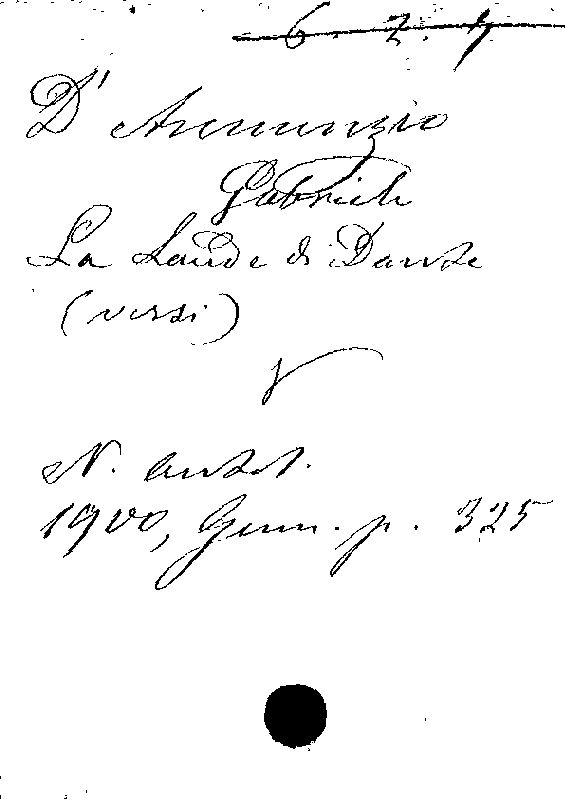 6. 2. 4
D' Annunzio
Gabriele
La Laude di Dante
(versi)
N. antol.
1900, Genn. p. 325